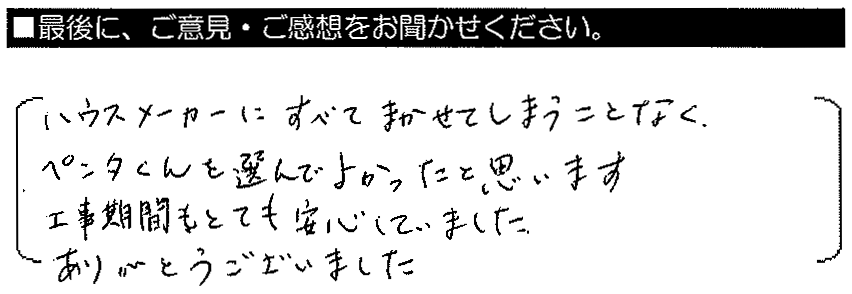 ■最後に、ご意見・ご感想をお聞かせください。
ハウスメーカーにすべてまかせてしまうことなく、
ペンタくんを選んでよかったと思います
工事期間もとても安心していました。
ありがとうございました